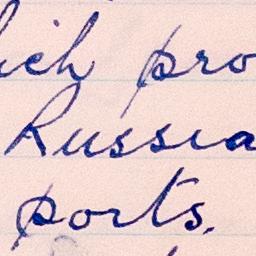 ich pro
Russia
ports.